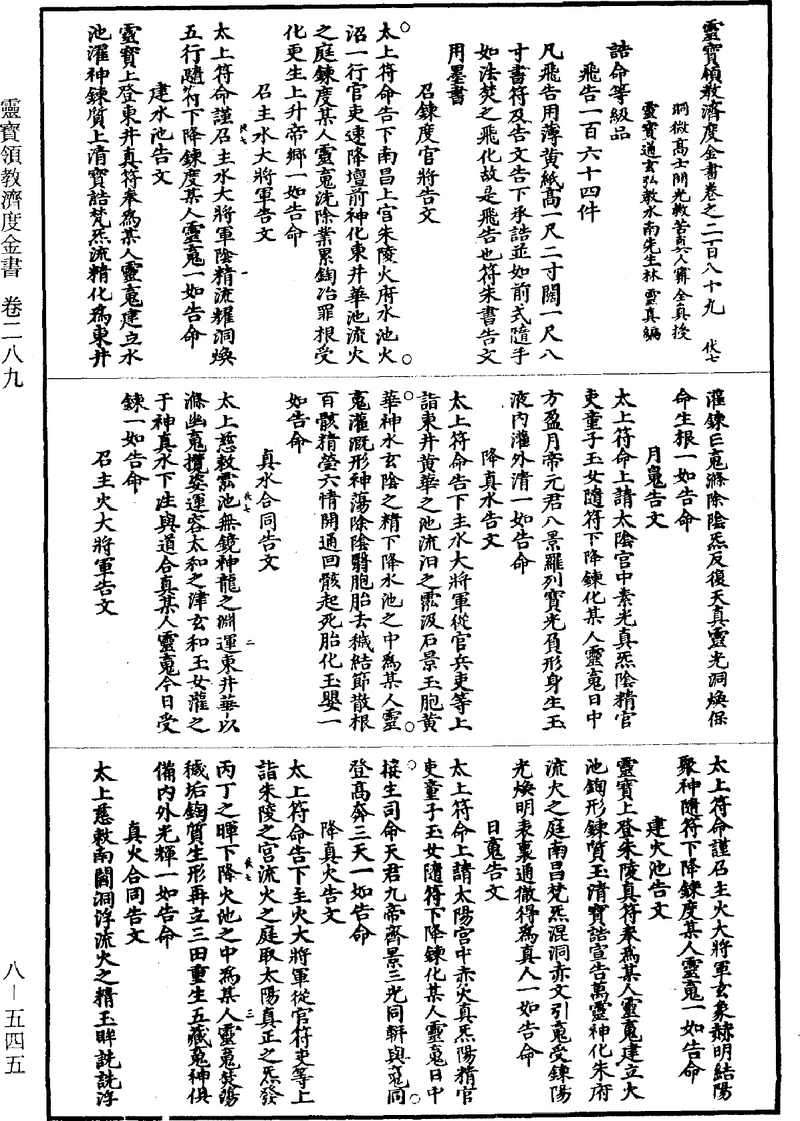 靈寶領教濟度金書卷之二百八十九 伏七
洞微高士開光救苦真人甯全真授
靈寶通玄弘教水南先生林靈真編
誥命等級品
飛告一百六十四件
凡飛告用薄黄紙高一尺二寸闊一尺八
寸書符及告文告下承誥並如前式隨手
如法焚之飛化故是飛告也符朱書告文
用墨書
召鍊度官將告文
太上符命告下南昌上宫朱陵火府水池火
沼一行官吏速降壇前神化東井華池流火
之庭鍊度某人靈䰟洗除業累鉤冶罪根受
化更生上升帝鄉一如告命
召主水大將軍告文
太上符命謹召主水大將軍陰精流耀洞煥
五行隨符下降鍊度某人靈䰟一如告命
建水池告文
靈寶上登東井真符奉為某人靈䰟建立水
池濯神鍊質上清寶誥梵炁流精化為東井
灌鍊亡䰟滌除陰炁反復天真靈光洞煥保
命生根一如告命
月䰟告文
太上符命上請太陰宫中素光真炁陰精官
吏童子玉女隨符下降鍊化某人靈䰟日中
方盈月帝元君八景羅列寶光負形身生玉
液内灌外清一如告命
降真水告文
太上符命告下主水大將軍從官兵吏等上
詣東井黄華之池流汨之霐汲石景玉胞黄
華神水玄陰之精下降水池之中為某人靈
䰟灌溉形神蕩除陰翳胞胎去穢結節散根
百骸精瑩六情開通回骸起死胎化玉嬰一
如告命
真水合同告文
太上慈敕霐池無鏡神龍之淵運東井華以
滌幽䰟攬姿運容太和之津玄和玉女灌之
于神真水下注與道合真某人靈䰟今日受
鍊一如告命
召主火大將軍告文
太上符命謹召主火大將軍玄象赫明結陽
聚神隨符下降鍊度某人靈䰟一如告命
建火池告文
靈寶上登朱陵真符奉為某人靈䰟建立火
池鉤形鍊質玉清寶誥宣告萬靈神化朱府
流火之庭南昌梵炁混洞赤文引䰟受鍊陽
光煥明表裏通徹得為真人一如告命
日䰟告文
太上符命上請太陽宫中赤火真炁陽精官
吏童子玉女隨符下降鍊化某人靈䰟日中
接生司命天君九帝齊景三光同軿與䰟同
登高奔三天一如告命
降真火告文
太上符命告下主火大將軍從官符吏等上
詣朱陵之宫流火之庭取太陽真正之炁發
丙丁之暉下降火池之中為某人靈䰟焚蕩
穢垢鉤質生形再立三田重生五藏䰟神俱
備内外光輝一如告命
真火合同告文
太上慈敕南閣洞浮流火之精玉眸詵詵浮
靈寶領教濟度金書 卷二八九
八—五四五